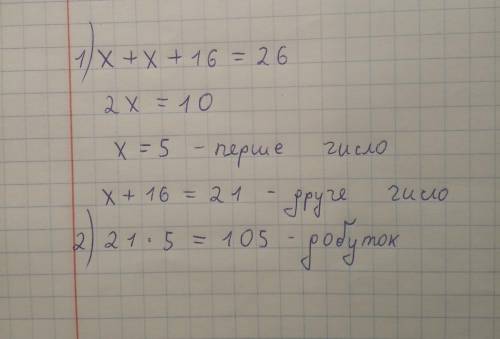 1) x + x + 16 = 26
2x = 10
x = 5 - перше число
x + 16 = 21 - друге число
2) 21 · 5 = 105 - добуток